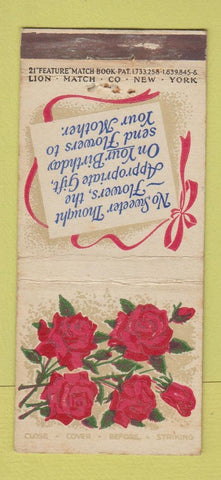 21 "FEATURE" MATCH BOOK PAT. 1,733,258 - 1,839,845-6
LION - MATCH - CO - NEW - YORK
No Sweeter Thought
—Flowers, the
Appropriate Gift,
On Your Birthday
send Flowers to
Your Mother.
CLOSE - COVER - BEFORE - STRIKING